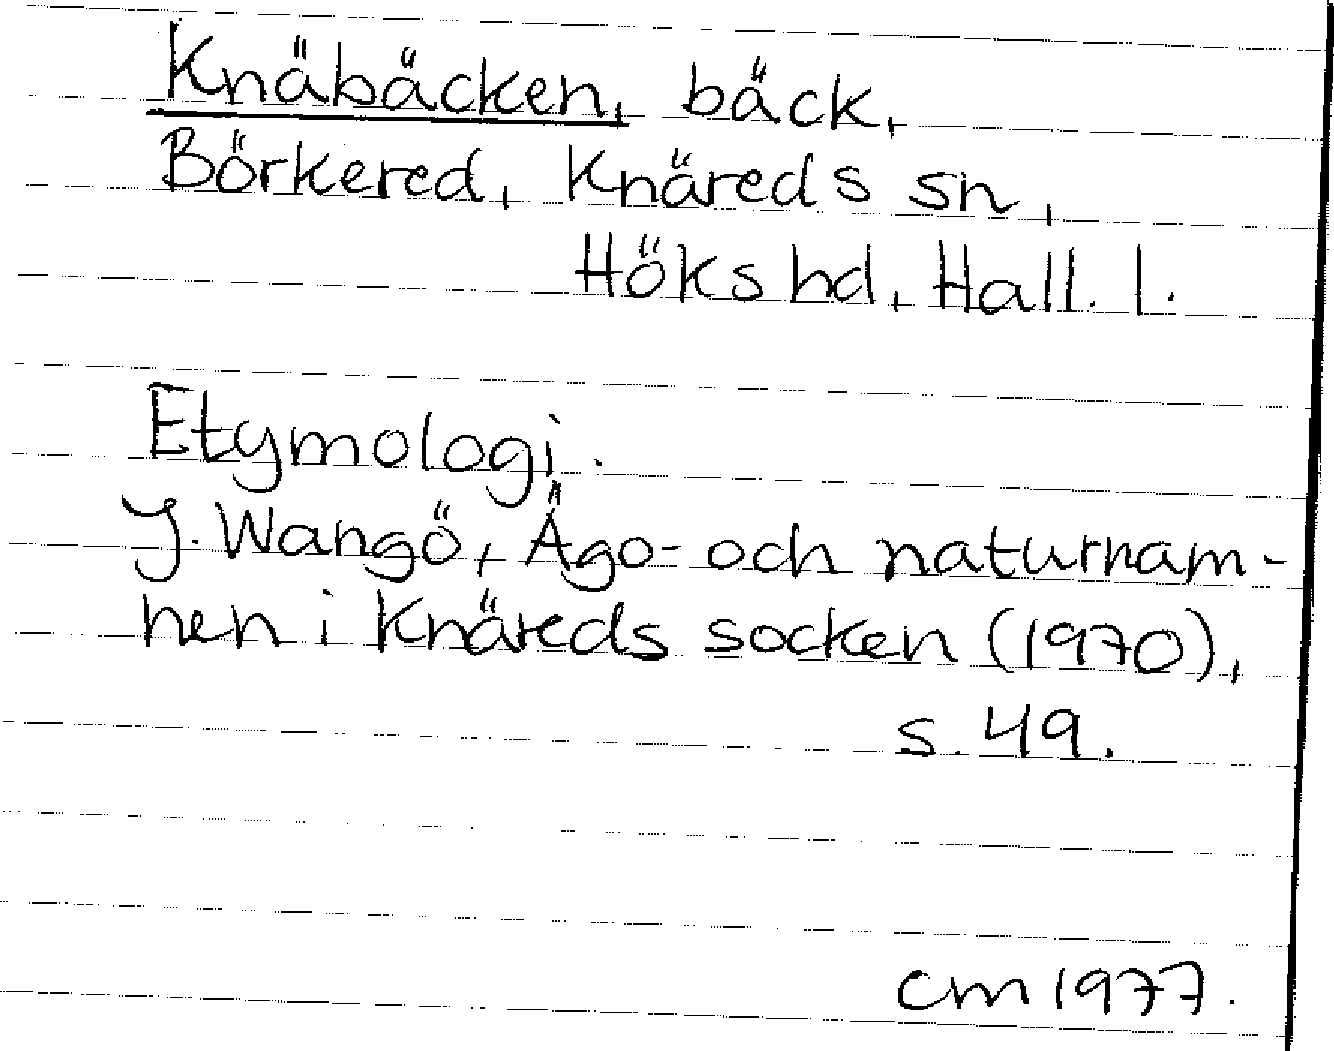 Knäbäcken, bäck,
Börkered, Knäreds sn,
Höks hd, Hall. l.
Etymologi.
J. Wangö, Ägo- och naturnam-
nen i Knäreds socken (1970),
s. 49.
CM 1977.